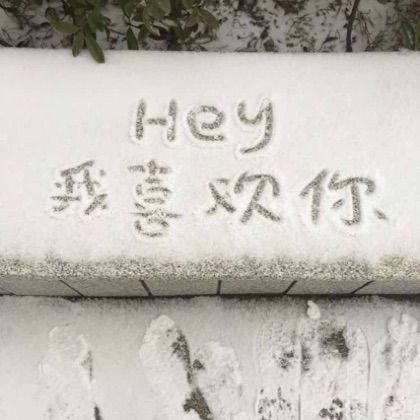 Hey
我喜欢你